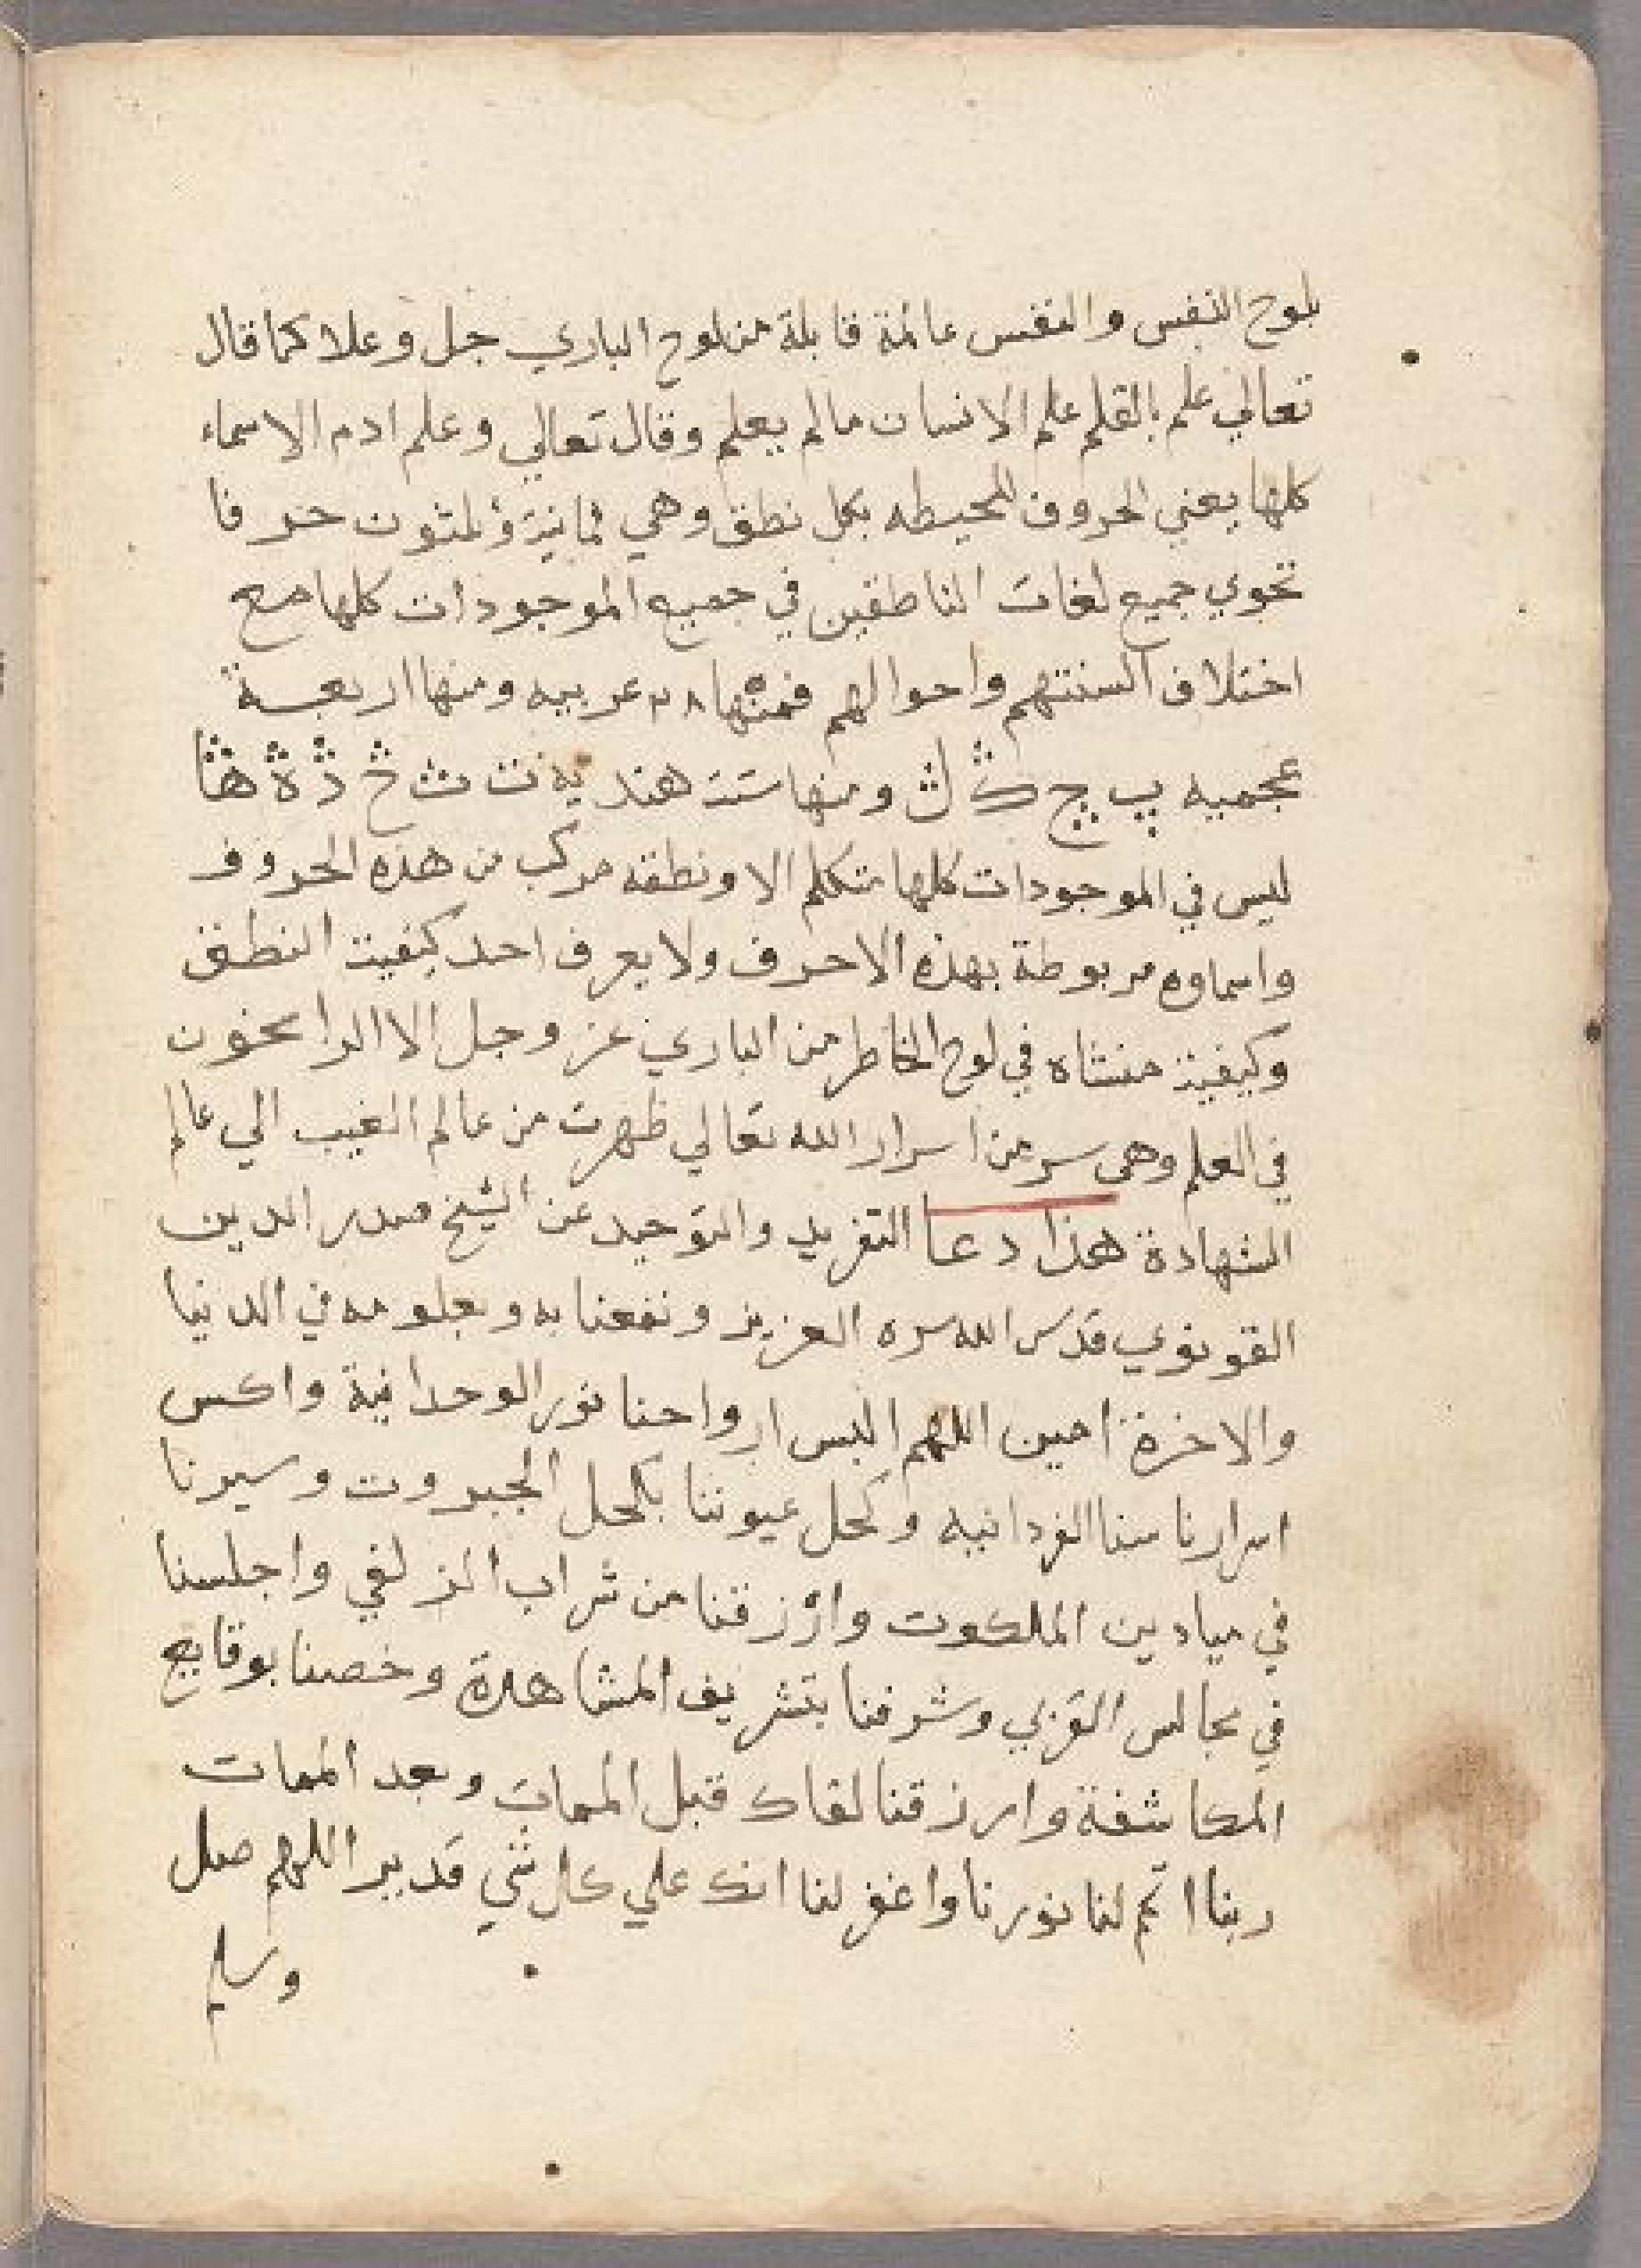 بلوح النفس والنفس عالمة قابلة من لوح الباري جل وعلا كما قال
تعالي علم بالقلم علم الانسان مالم يعلم وقال تعالي وعلم ادم الاسماء
كلها يعني الحروف المحيطه بكل نطق وهي ثمانية وثلثون حرفا
تحوي جميع لغات الناطقين في جميع الموجودات كلها مع
اختلاف السنتهم واحوالهم فمنها ٢٨ عربيه ومنها اربعة
عجميه پ چ ومنها ستة هنديه
ليس في الموجودات كلها متكلم الا ونطقه مركب من هذه الحروف
واسماوه مربوطة بهذه الاحرف ولا يعرف احد كيفية النطق
وكيفية منشاه في لوح الخاطر من الباري عز وجل الا الراسخون
في العلم وهي سر من اسرار الله تعالي ظهرت من عالم الغيب الي عالم
الشهادة هذا دعا التفريد والتوحيد عن الشيخ صدر الدين
القونوي قدس الله سره العزيز ونفعنا به وبعلومه في الدنيا
والاخرة امين اللهم البس ارواحنا نور الوحدانية واكس
اسرارنا سنا الفردانيه وكحل عيوننا بكحل الجبروت وسيرنا
في ميادين الملكوت وارزقنا من شراب الزلفي واجلسنا
في مجالس القربي وشرفنا بتشريف المشاهدة وخصنا بوقايع
المكاشفة وارزقنا لقاك قبل الممات وبعد الممات
ربنا اتمم لنا نورنا واغفر لنا انك علي كل شي قدير اللهم صل
وسلم